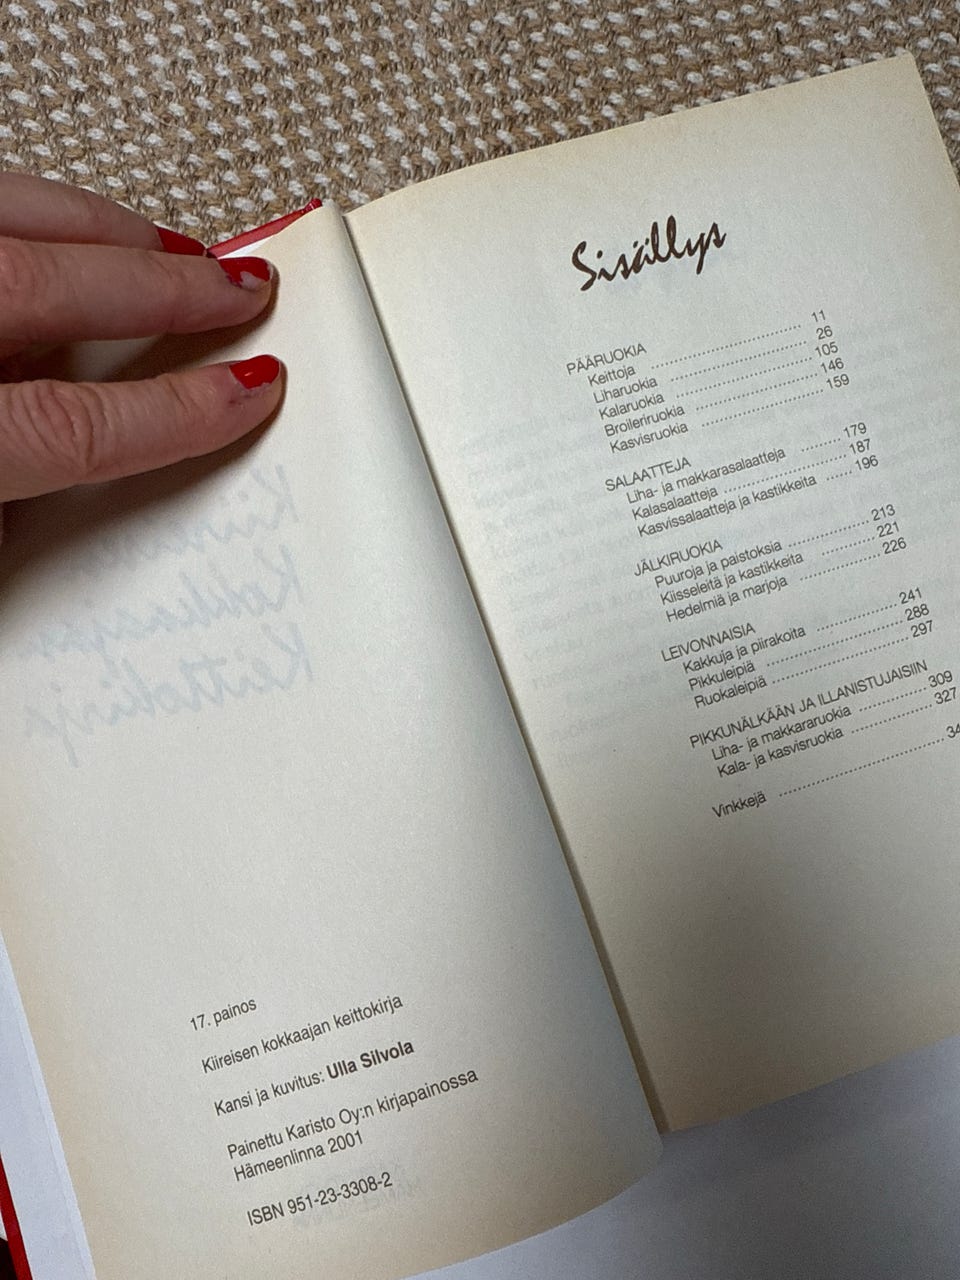 17. painos
Kiireisen kokkaajan keittokirja
Kansi ja kuvitus: Ulla Silvola
Painettu Karisto Oy:n kirjapainossa
Hämeenlinna 2001
ISBN 951-23-3308-2
Sisällys
PÄÄRUOKIA
Keittoja 11
Liharuokia 26
Kalaruokia 105
Broileriruokia 146
Kasvisruokia 159
SALAATTEJA
Liha- ja makkarasalaatteja 179
Kalasalaatteja 187
Kasvissalaatteja ja kastikkeita 196
JÄLKIRUOKIA
Puuroja ja paistoksia 213
Kiisseleitä ja kastikkeita 221
Hedelmiä ja marjoja 226
LEIVONNAISIA
Kakkuja ja piirakoita 241
Pikkuleipiä 288
Ruokaleipiä 297
PIKKUNÄLKÄÄN JA ILLANISTUJAISIIN
Liha- ja makkararuokia 309
Kala- ja kasvisruokia 327
Vinkkejä